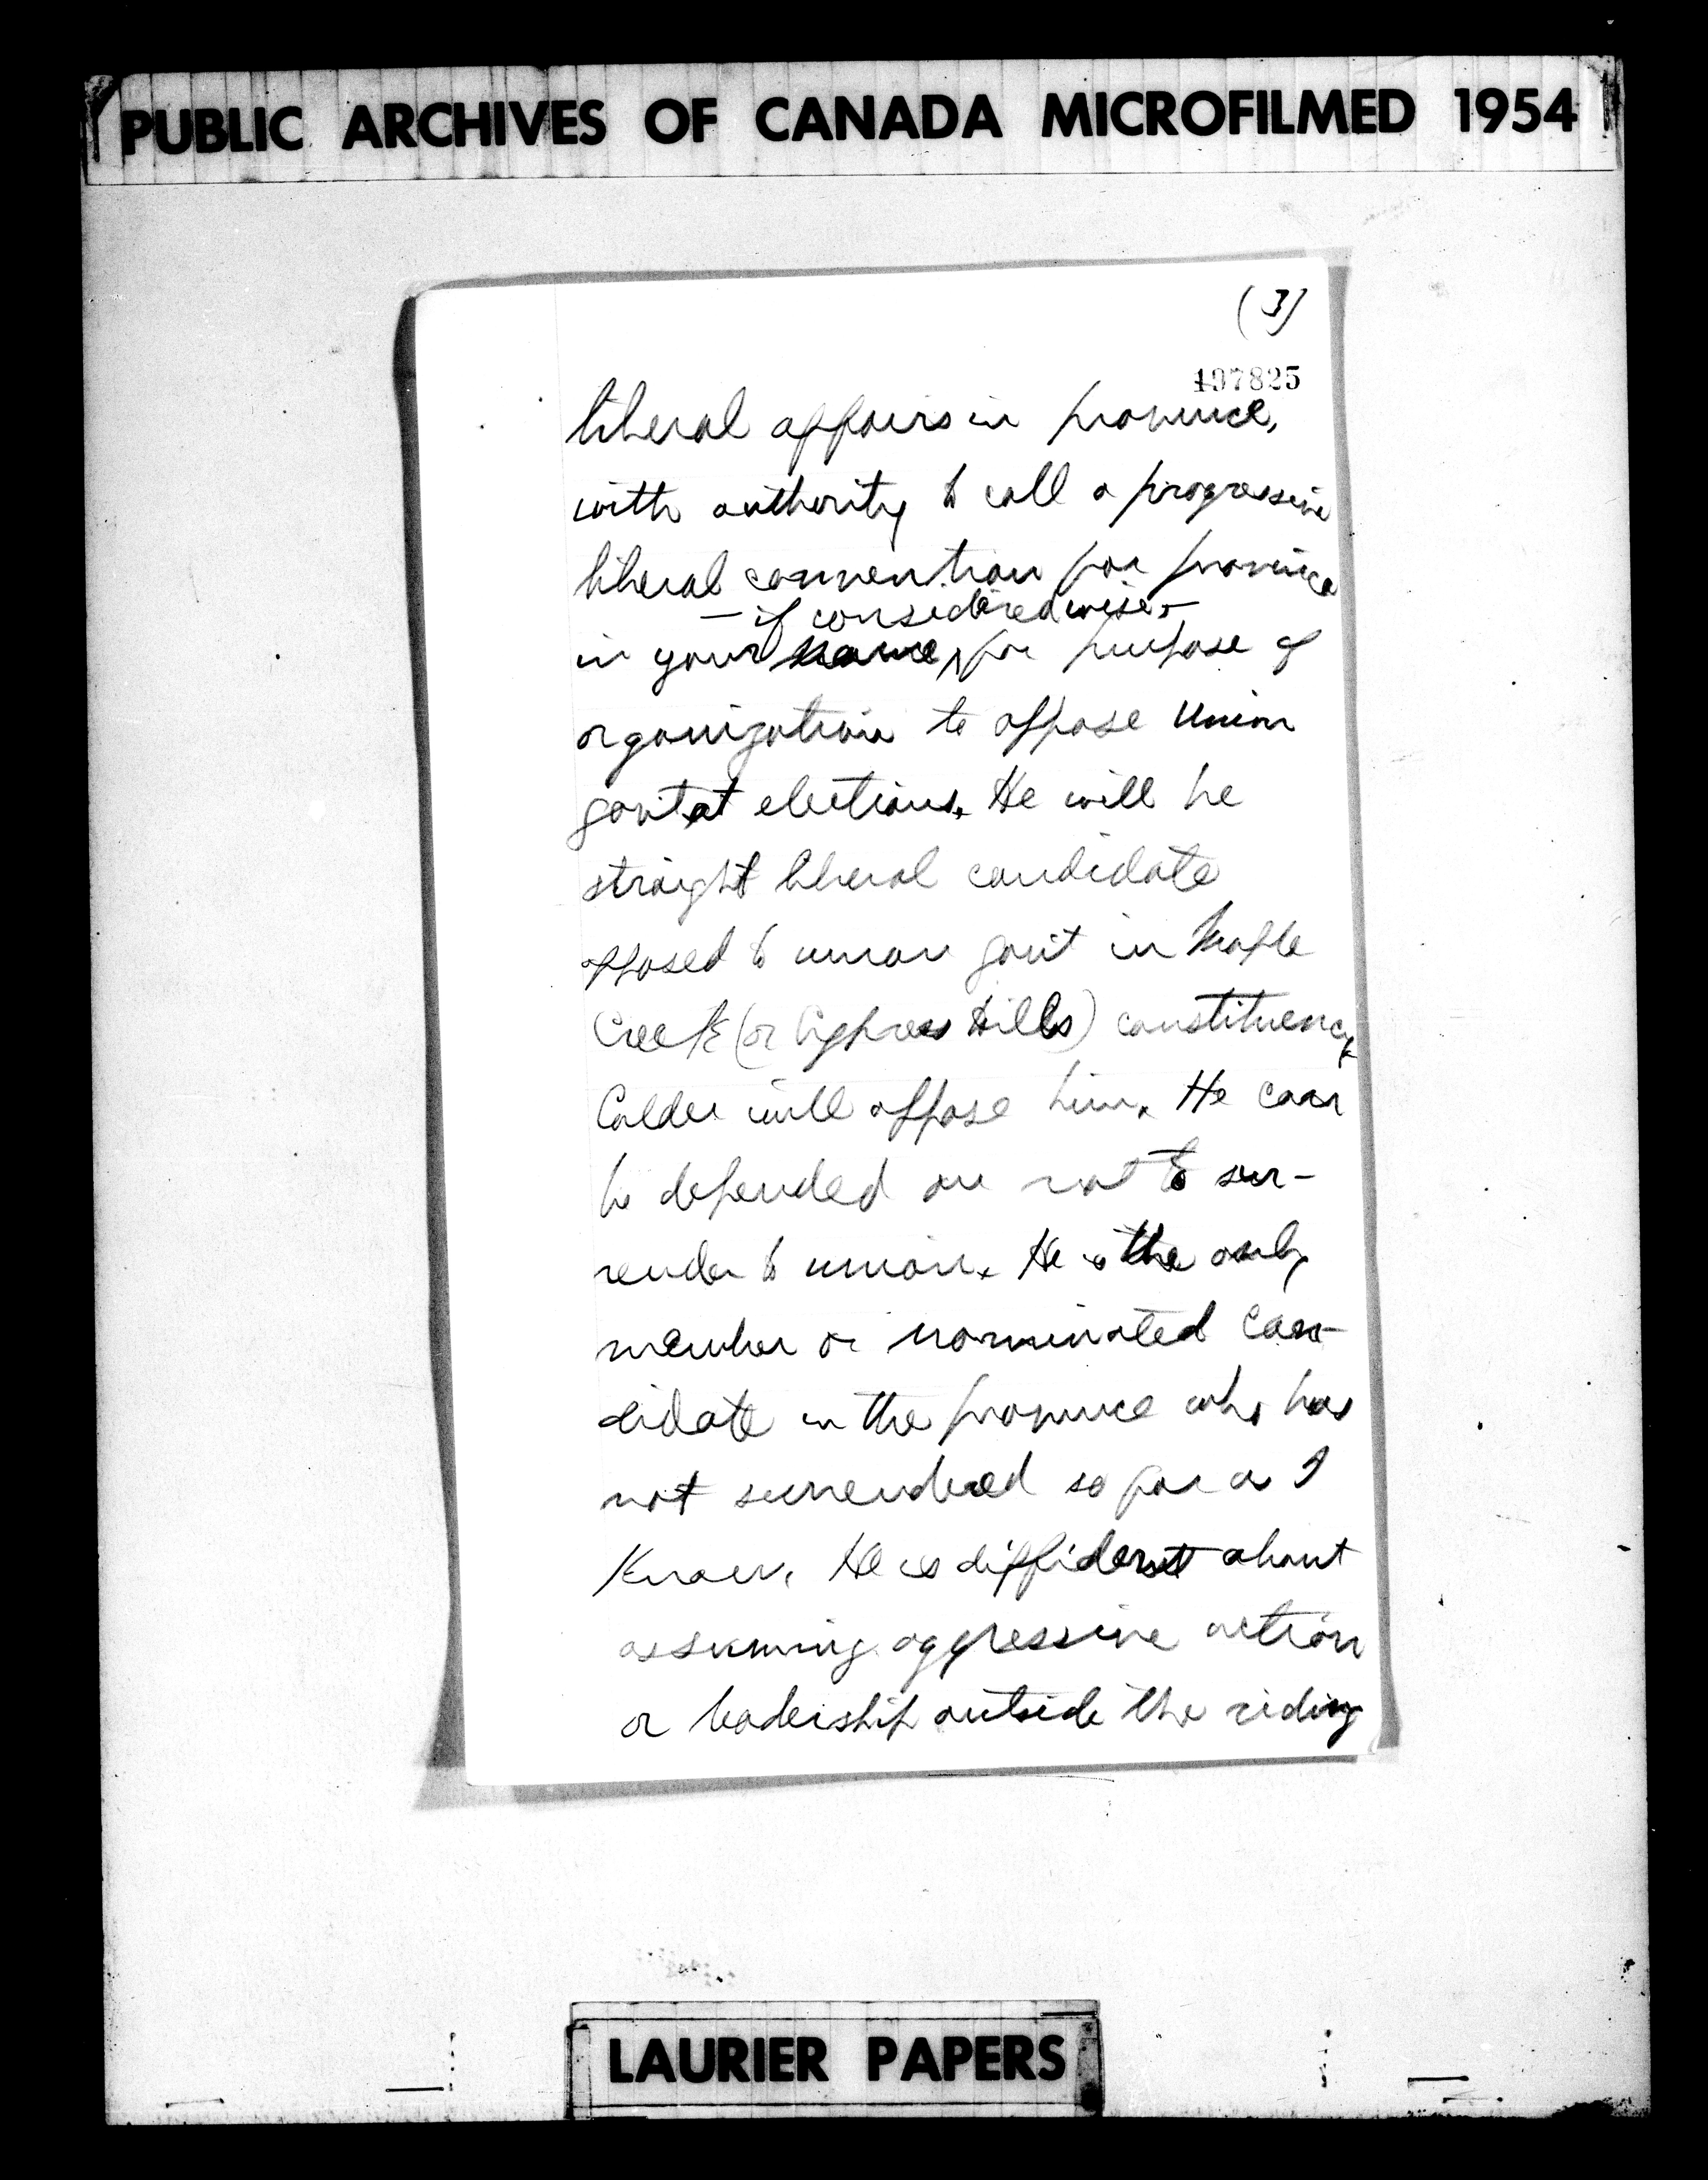 PUBLIC ARCHIVES OF CANADA MICROFILMED 1954
(3)
197825
liberal affairs in province,
with authority to call a progressive
liberal convention for province
— if considered wise —
in your name, for purpose of
organization to oppose Union
govt at elections. He will be
straight liberal candidate
opposed to union govt in Maple
Creek (or Cypress Hills) constituency.
Calder will oppose him. He can
be depended on not to sur-
render to union. He is the only
member or nominated can-
didate in the province who has
not surrendered so far as I
know. He is diffident about
assuming aggressive action
or leadership outside the riding
LAURIER PAPERS